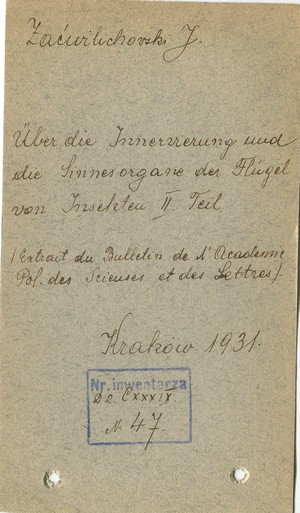 Zaćwilichovski J.
Über die Innervierung und
die Sinnesorgane der Flügel
von Insekten II. Teil
(Extrait du Bulletin de l'Academie
Pol. des Scienses et des Lettres).
Kraków 1931.
Nr. inwentarza
CXXXIX
№ 47.